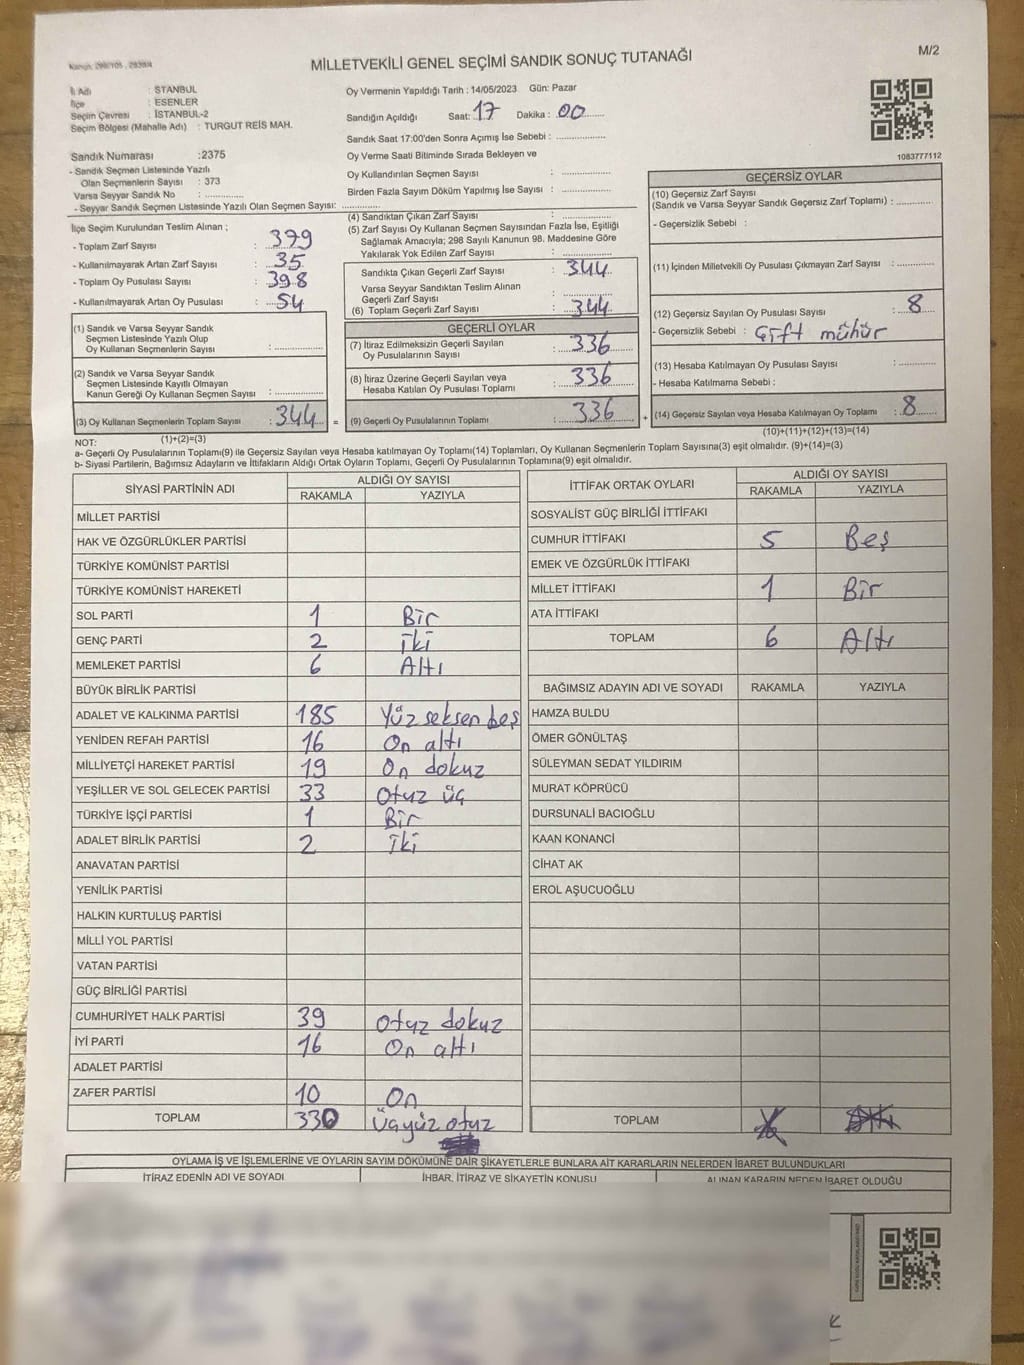 MİLLETVEKİLİ GENEL SEÇİMİ SANDIK SONUÇ TUTANAĞI
M/2
İl Adı : STANBUL
İlçe : ESENLER
Seçim Çevresi : İSTANBUL-2
Seçim Bölgesi (Mahalle Adı) : TURGUT REİS MAH.
Sandık Numarası :2375
- Sandık Seçmen Listesinde Yazılı
Olan Seçmenlerin Sayısı : 373
Varsa Seyyar Sandık No :
- Seyyar Sandık Seçmen Listesinde Yazılı Olan Seçmen Sayısı:
Oy Vermenin Yapıldığı Tarih : 14/05/2023 Gün: Pazar
Sandığın Açıldığı Saat: 17 Dakika : 00
Sandık Saat 17:00'den Sonra Açımış İse Sebebi :
Oy Verme Saati Bitiminde Sırada Bekleyen ve
Oy Kullandırılan Seçmen Sayısı :
Birden Fazla Sayım Döküm Yapılmış İse Sayısı :
1083777112
İlçe Seçim Kurulundan Teslim Alınan ;
- Toplam Zarf Sayısı : 379
- Kullanılmayarak Artan Zarf Sayısı : 35
- Toplam Oy Pusulası Sayısı : 398
- Kullanılmayarak Artan Oy Pusulası : 54
(1) Sandık ve Varsa Seyyar Sandık
Seçmen Listesinde Yazılı Olup
Oy Kullanan Seçmenlerin Sayısı :
(2) Sandık ve Varsa Seyyar Sandık
Seçmen Listesinde Kayıtlı Olmayan
Kanun Gereği Oy Kullanan Seçmen Sayısı :
(3) Oy Kullanan Seçmenlerin Toplam Sayısı : 344 =
(1)+(2)=(3)
(4) Sandıktan Çıkan Zarf Sayısı :
(5) Zarf Sayısı Oy Kullanan Seçmen Sayısından Fazla İse, Eşitliği
Sağlamak Amacıyla; 298 Sayılı Kanunun 98. Maddesine Göre
Yakılarak Yok Edilen Zarf Sayısı :
Sandıkta Çıkan Geçerli Zarf Sayısı : 344
Varsa Seyyar Sandıktan Teslim Alınan
Geçerli Zarf Sayısı :
(6) Toplam Geçerli Zarf Sayısı : 344
GEÇERLİ OYLAR
(7) İtiraz Edilmeksizin Geçerli Sayılan
Oy Pusulalarının Sayısı : 336
(8) İtiraz Üzerine Geçerli Sayılan veya
Hesaba Katılan Oy Pusulası Toplamı : 336
(9) Geçerli Oy Pusulalarının Toplamı : 336 +
GEÇERSİZ OYLAR
(10) Geçersiz Zarf Sayısı
(Sandık ve Varsa Seyyar Sandık Geçersiz Zarf Toplamı) :
- Geçersizlik Sebebi :
(11) İçinden Milletvekili Oy Pusulası Çıkmayan Zarf Sayısı :
(12) Geçersiz Sayılan Oy Pusulası Sayısı : 8
- Geçersizlik Sebebi : Çift mühür
(13) Hesaba Katılmayan Oy Pusulası Sayısı :
- Hesaba Katılmama Sebebi :
(14) Geçersiz Sayılan veya Hesaba Katılmayan Oy Toplamı : 8
(10)+(11)+(12)+(13)=(14)
NOT:
a- Geçerli Oy Pusulalarının Toplamı(9) ile Geçersiz Sayılan veya Hesaba katılmayan Oy Toplamı(14) Toplamları, Oy Kullanan Seçmenlerin Toplam Sayısına(3) eşit olmalıdır. (9)+(14)=(3)
b- Siyasi Partilerin, Bağımsız Adayların ve İttifakların Aldığı Ortak Oyların Toplamı, Geçerli Oy Pusulalarının Toplamına(9) eşit olmalıdır.
SİYASİ PARTİNİN ADI ALDIĞI OY SAYISI
RAKAMLA YAZIYLA
MİLLET PARTİSİ
HAK VE ÖZGÜRLÜKLER PARTİSİ
TÜRKİYE KOMÜNİST PARTİSİ
TÜRKİYE KOMÜNİST HAREKETİ
SOL PARTİ 1 Bir
GENÇ PARTİ 2 iki
MEMLEKET PARTİSİ 6 Altı
BÜYÜK BİRLİK PARTİSİ
ADALET VE KALKINMA PARTİSİ 185 Yüz seksen beş
YENİDEN REFAH PARTİSİ 16 On altı
MİLLİYETÇİ HAREKET PARTİSİ 19 On dokuz
YEŞİLLER VE SOL GELECEK PARTİSİ 33 Otuz üç
TÜRKİYE İŞÇİ PARTİSİ 1 Bir
ADALET BİRLİK PARTİSİ 2 İki
ANAVATAN PARTİSİ
YENİLİK PARTİSİ
HALKIN KURTULUŞ PARTİSİ
MİLLİ YOL PARTİSİ
VATAN PARTİSİ
GÜÇ BİRLİĞİ PARTİSİ
CUMHURİYET HALK PARTİSİ 39 Otuz dokuz
İYİ PARTİ 16 On altı
ADALET PARTİSİ
ZAFER PARTİSİ 10 On
TOPLAM 330 Üçyüz otuz
İTTİFAK ORTAK OYLARI ALDIĞI OY SAYISI
RAKAMLA YAZIYLA
SOSYALİST GÜÇ BİRLİĞİ İTTİFAKI
CUMHUR İTTİFAKI 5 Beş
EMEK VE ÖZGÜRLÜK İTTİFAKI
MİLLET İTTİFAKI 1 Bir
ATA İTTİFAKI
TOPLAM 6 Altı
BAĞIMSIZ ADAYIN ADI VE SOYADI RAKAMLA YAZIYLA
HAMZA BULDU
ÖMER GÖNÜLTAŞ
SÜLEYMAN SEDAT YILDIRIM
MURAT KÖPRÜCÜ
DURSUNALİ BACIOĞLU
KAAN KONANCİ
CİHAT AK
EROL AŞUCUOĞLU
TOPLAM
OYLAMA İŞ VE İŞLEMLERİNE VE OYLARIN SAYIM DÖKÜMÜNE DAİR ŞİKAYETLERLE BUNLARA AİT KARARLARIN NELERDEN İBARET BULUNDUKLARI
İTİRAZ EDENİN ADI VE SOYADI
İHBAR, İTİRAZ VE ŞİKAYETİN KONUSU
ALINAN KARARIN NEDEN İBARET OLDUĞU